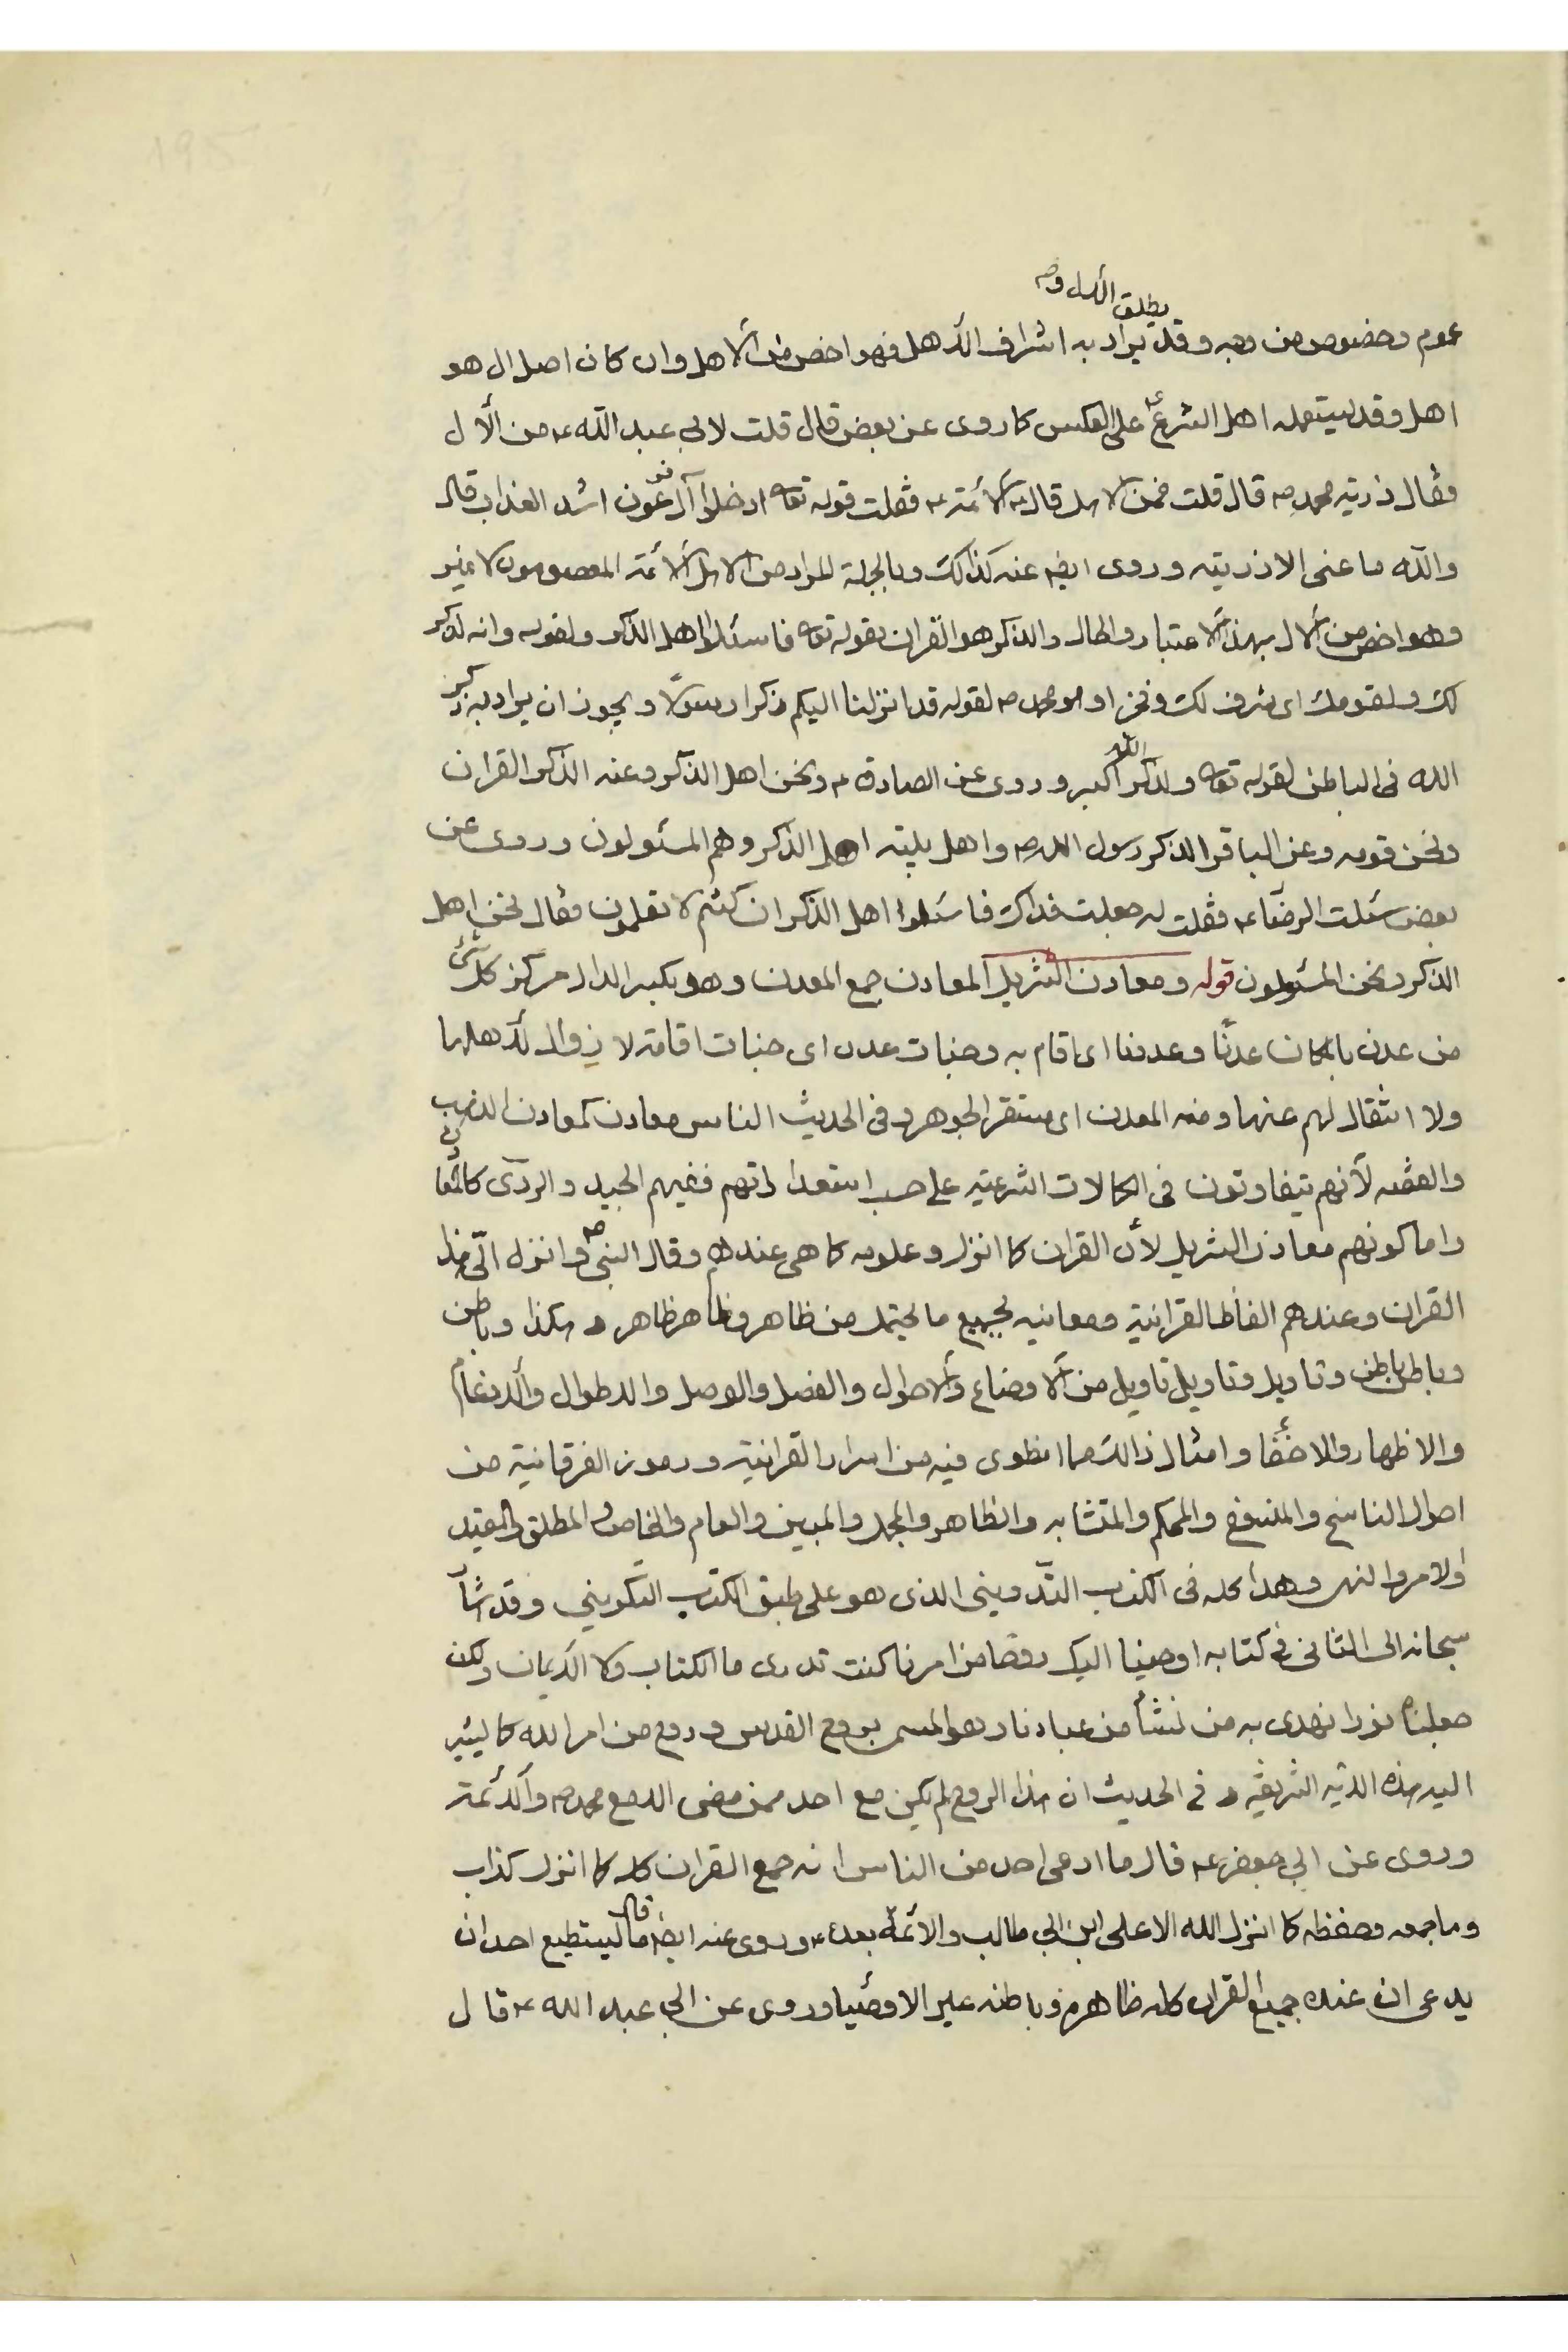 يطلق الال و
عموم وخصوص من وجه وقد يراد به اشراف الأهل فهو اخص من الأهل وان كان اصل ال هو
اهل وقد يستعمله اهل الشرع على العكس كما روى عن بعض قال قلت لابي عبد الله ع من الآل
فقال ذريته محمد ص قال قلت فمن الاهل قال الأئمة ع فقلت قوله تعا ادخلوا آل فرعون اشد العذاب قال
والله ما عنى الا ذريته وروى ايضا عنه كذلك وبالجملة المراد من الاهل الأئمة المعصومون لا غير
وهو اخص من الال بهذا الاعتبار والحال والذكر هو القران بقوله تعا فاسئلوا اهل الذكر ولقوله وانه لذكر
لك ولقومك اى شرف لك وفخر او هو محمد ص لقوله قد انزلنا اليكم ذكرا رسولا ويجوز ان يراد به ذكر
الله فى الباطن لقوله تعا ولذكر الله اكبر وروى عن الصادق ع ونحن اهل الذكر وعنه الذكر القران
ونحن قومه وعن الباقر الذكر رسول الله ص واهل بيته اهل الذكر وهم المسئولون وروى عن
بعض سئلت الرضا ع فقلت له جعلت فداك فاسئلوا اهل الذكر ان كنتم لا تعلمون فقال نحن اهل
الذكر ونحن المسئولون قوله ومعادن التنزيل المعادن جمع المعدن وهو بكسر الدال مركز كل شئ
من عدن بالمكان عدنا وعدونا اى اقام به وجنات عدن اى جنات اقامة لا زوال لأهلها
ولا انتقال لهم عنها ومنه المعدن اى مستقر الجوهر وفى الحديث الناس معادن كمعادن الذهب
والفضه لأنهم يتفاوتون فى الكمالات الشرعيه على حسب استعداداتهم ففيهم الجيد والردى كالمعادن
واما كونهم معادن التنزيل لأن القران كما انزل وعلومه كما هى عندهم وقال النبى ص وانزل الىّ هذا
القران وعندهم الفاظ القرانية ومعانيه بجميع ما يحتمل من ظاهر وظاهر ظاهر و هكذا وباطن
وباطن باطن وتاويل وتاويل تاويل من الاوضاع والاحوال والفصل والوصل والاطوال والادغام
والاظهار والاخفاء وامثال ذالك مما انطوى فيه من اسرار القرانية ورموز الفرقانية من
احوال الناسخ والمنسوخ والمحكم والمتشابه والظاهر والمجمل والمبين والعام والخاص والمطلق والمقيد
والامر والنهى وهذا كله فى الكتاب التدوينى الذى هو على طبق الكتاب التكوينى وقد اشار
سبحانه الى الثانى فى كتابه اوحينا اليك روحا من امرنا كنت تدرى ما الكتاب ولا الأيمان ولكن
جعلناه نورا نهدى به من نشأ من عبادنا وهو المسمى بروح القدس وروح من امر الله كما يشير
اليه هذه الاية الشريفة و فى الحديث ان هذا الروح لم يكن مع احد ممن مضى الا مع محمد ص والأئمة
وروى عن ابي جعفر ع قال ما ادعى احد من الناس انه جمع القران كله كما انزل كذاب
وما جمعه وحفظه كما انزل الله الا على ابن ابي طالب والائمة بعده ع وروى عنه ايضا قال ما يستطيع احد ان
يدعى ان عنده جميع القران كله ظاهره وباطنه غير الاوصياء وروى عن ابي عبد الله ع قال